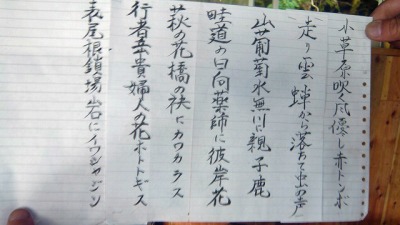 小草原吹く風優し赤トンボ
走り雲蝉から落ちて虫の声
山葡萄水無川親子鹿
畦道の日向薬師に彼岸花
萩の花橋の袂にカワカラス
行者岳貴婦人の花ホトトギス
表尾根鎖場岩にイワシャジン